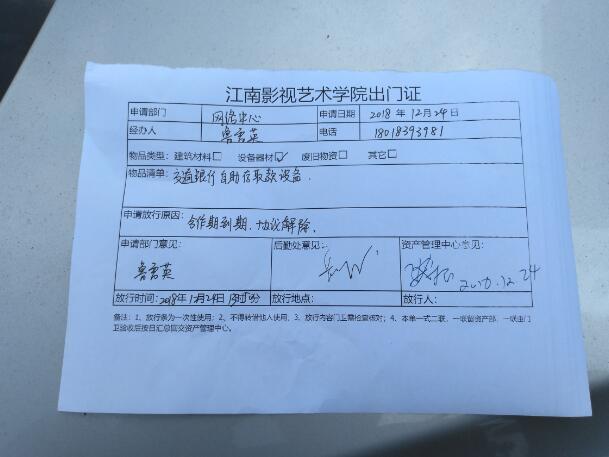 江南影视艺术学院出门证
申请部门 网络中心 申请日期 2018年12月24日
经办人 鲁雪英 电话 18018393981
物品类型: 建筑材料□ 设备器材☑ 废旧物资□ 其它□
物品清单: 交通银行自助存取款设备.
申请放行原因: 合作期到期, 协议解除.
申请部门意见: 后勤处意见: 资产管理中心意见:
鲁雪英
2018.12.24
放行时间: 2018年12月24日 放行地点: 放行人:
备注: 1、放行条为一次性使用; 2、不得转借他人使用; 3、放行内容门卫需检查核对; 4、本单一式二联, 一联留资产部, 一联由门
卫验收后按日汇总回交资产管理中心。